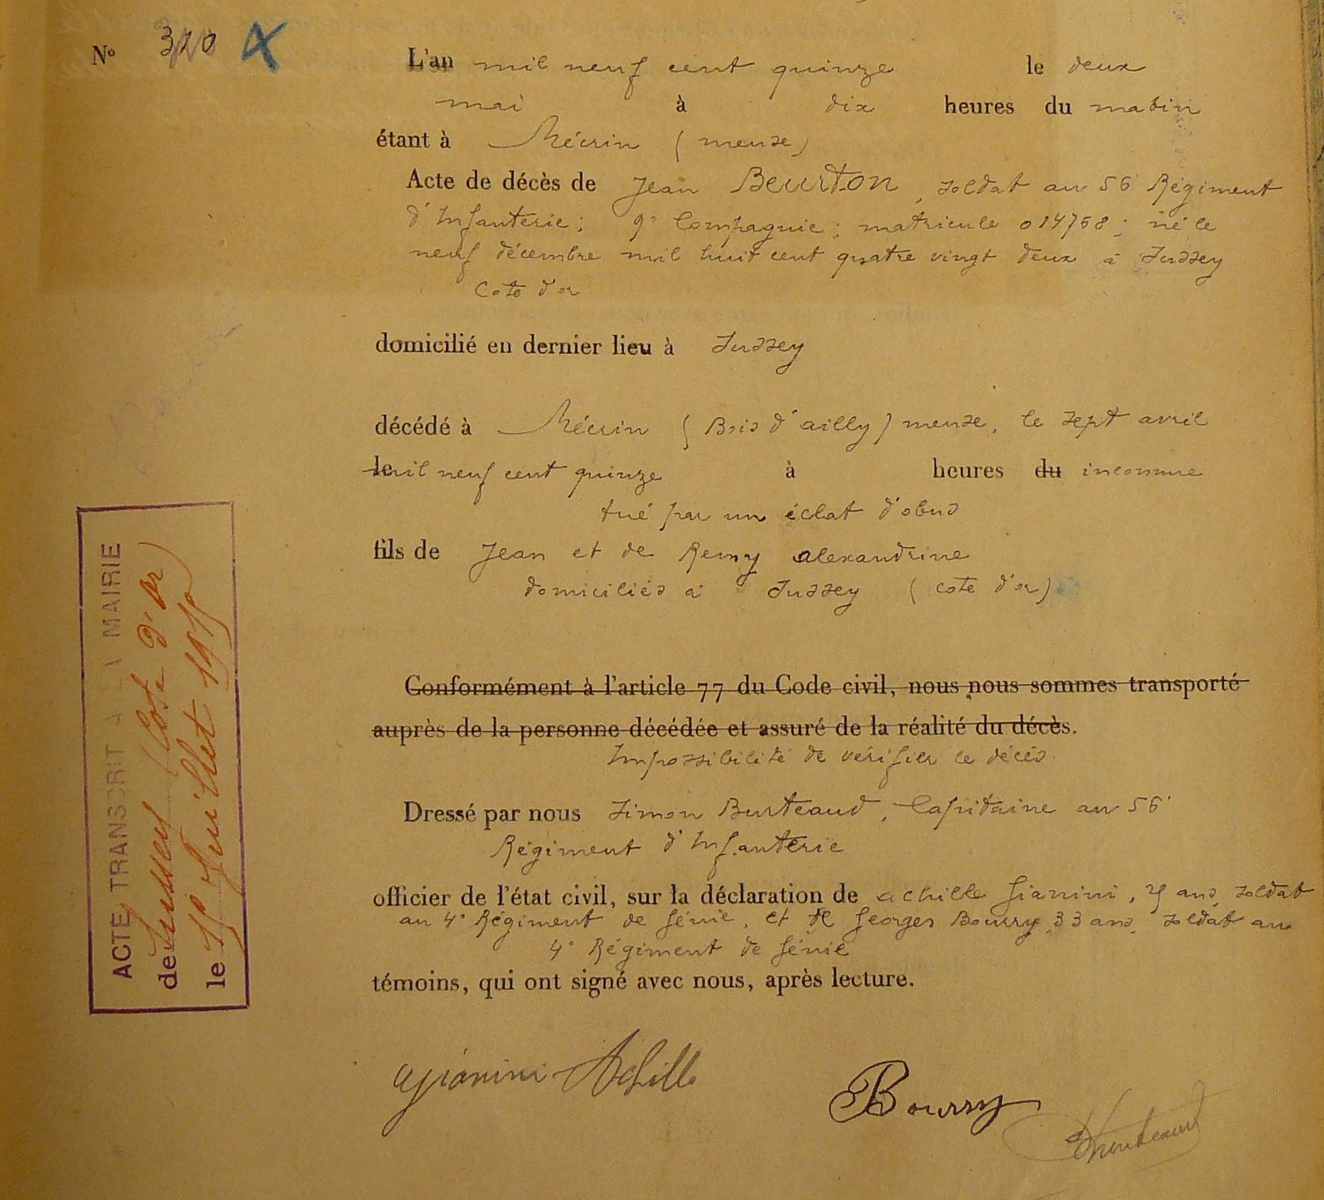 N° 320 X
L'an mil neuf cent quinze le deux
mai à dix heures du matin
étant à Mécrin (meuse)
Acte de décès de Jean Beurton, soldat au 56e Régiment
d'Infanterie; 9e Compagnie; matricule 014768; né le
neuf décembre mil huit cent quatre vingt deux à Jussey
Cote d'or
domicilié en dernier lieu à Jussey
décédé à Mécrin (Bois d'ailly) meuse, le sept avril
le mil neuf cent quinze à heures du inconnue
tué par un éclat d'obus
fils de Jean et de Remy alexandrine
domiciliés à Jussey (cote d'or)
Conformément à l'article 77 du Code civil, nous nous sommes transporté
auprès de la personne décédée et assuré de la réalité du décès.
Impossibilité de vérifier le décès
Dressé par nous Simon Burteaud, Capitaine au 56e
Régiment d'Infanterie
officier de l'état civil, sur la déclaration de achille Gianini, ans, soldat
au 4e Régiment de Génie, et de Georges Bourry 33 ans, soldat au
4e Régiment de Génie
témoins, qui ont signé avec nous, après lecture.
Gianini Achille
Bourry
ACTE TRANSCRIT A LA MAIRIE
de Jussey (Cote d'or)
le 15 Juillet 1915